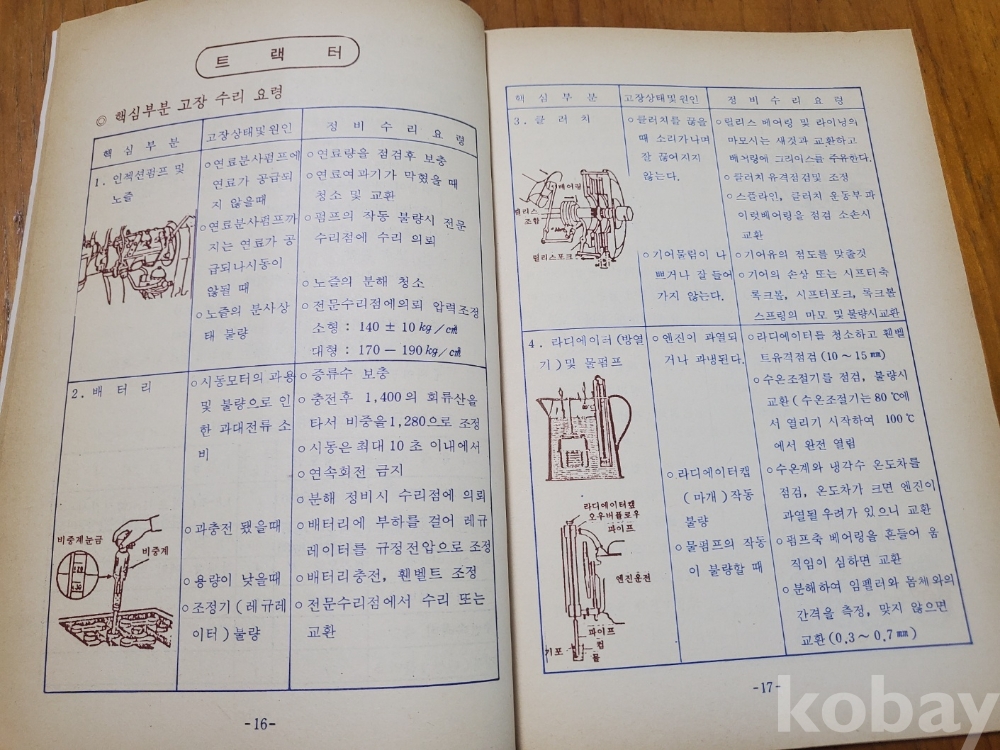 트 랙 터
◎ 핵심부분 고장 수리 요령
핵 심 부 분
고장상태및원인
정 비 수 리 요 령
1. 인젝션펌프 및
노즐
○연료분사펌프에
연료가 공급되
지 않을때
○연료분사펌프까
지는 연료가 공
급되나시동이
않될 때
○노즐의 분사상
태 불량
○연료량을 점검후 보충
○연료여과기가 막혔을 때
청소 및 교환
○펌프의 작동 불량시 전문
수리점에 수리 의뢰
○노즐의 분해 청소
○전문수리점에의뢰 압력조정
소형 : 140 ± 10 kg/㎠
대형 : 170 - 190 kg/㎠
2. 배 터 리
비중계눈금
비중계
○시동모터의 과용
및 불량으로 인
한 과대전류 소
비
○과충전 됐을때
○용량이 낮을때
○조정기 (레규레
이터) 불량
○증류수 보충
○충전후 1,400의 희류산을
타서 비중을1,280으로 조정
○시동은 최대 10초 이내에서
○연속회전 금지
○분해 정비시 수리점에 의뢰
○배터리에 부하를 걸어 레규
레이터를 규정전압으로 조정
○배터리충전, 휀벨트 조정
○전문수리점에서 수리 또는
교환
-16-
핵 심 부 분
고장상태및원인
정 비 수 리 요 령
3. 클 러 치
베어링
릴리스
조합
릴리스포크
○클러치를 끊을
때 소리가나며
잘 끊어지지
않는다.
○기어물림이 나
쁘거나 잘 들어
가지 않는다.
○릴리스 베어링 및 라이닝의
마모시는 새것과 교환하고
베어링에 그리이스를 주유한다.
○클러치유격점검및 조정
○스플라인, 클러치 운동부과
이럿베어링을 점검 소손시
교환
○기어유의 점도를 맞출것
○기어의 손상 또는 시프터축
록크볼, 시프터포크, 록크볼
스프링의 마모 및불량시교환
4. 라디에이터 (방열
기) 및 물펌프
라디에이터캡
오우버플로우
파이프
엔진운전
파이프
기포
컵
물
○엔진이 과열되
거나 과냉된다.
○라디에이터캡
(마개) 작동
불량
○물펌프의 작동
이 불량할 때
○라디에이터를 청소하고 휀벨
트유격점검 (10~15㎜)
○수온조절기를 점검, 불량시
교환 (수온조절기는 80℃에
서 열리기 시작하여 100℃
에서 완전 열림
○수온계와 냉각수 온도차를
점검, 온도차가 크면 엔진이
과열될 우려가 있으니 교환
○펌프축 베어링을 흔들어 움
직임이 심하면 교환
○분해하여 임펠러와 몸체와의
간격을 측정, 맞지 않으면
교환 (0.3~0.7㎜)
-17-
kobay